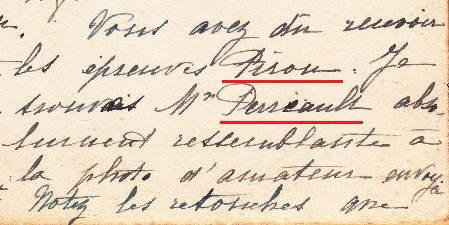 . Vous avez dû recevoir
les épreuves Pirou. Je
trouvais Mr Perrault abso-
lument ressemblante à
la photo d'amateur envoyée
Notez les retouches que